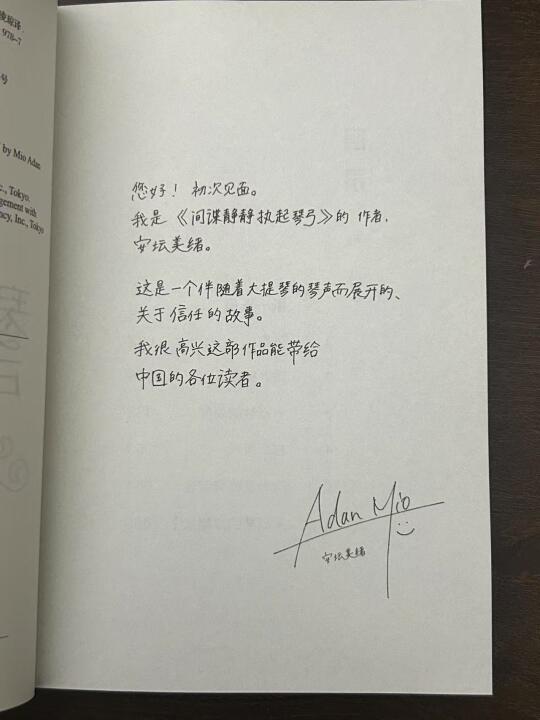 您好！初次见面。
我是《间谍静静执起琴弓》的作者，
安坛美绪。
这是一个伴随着大提琴的琴声而展开的、
关于信任的故事。
我很高兴这部作品能带给
中国的各位读者。
Adan Mio
安坛美绪
978-7
号
by Mio Adan
c., Tokyo.
gement with
ncy, Inc., Tokyo